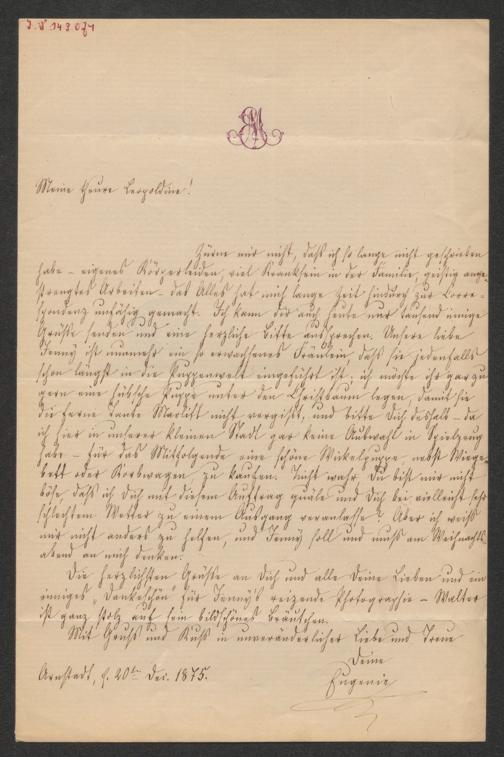 J. N. 149.071
EM
Meine theure Leopoldine!
Zürne mir nicht, daß ich so lange nicht geschrieben
habe – eigenes Körperleiden, viel Kranksein in der Familie, geistig ange-
strengtes Arbeiten – das Alles hat mich lange Zeit hindurch zur Corre-
spondenz unfähig gemacht. Ich kann Dir auch heute nur tausend innige
Grüße senden und eine herzliche Bitte aussprechen. Unsere liebe
Jenny ist nunmehr ein so erwachsenes Fräulein, daß sie jedenfalls
schon längst in die Puppenwelt eingeführt ist; ich möchte ihr gar zu
gern eine hübsche Puppe unter den Christbaum legen, damit sie
die ferne Tante Marlitt nicht vergißt, und bitte Dich deshalb – da
ich hier in unserer kleinen Stadt gar keine Auswahl in Spielzeug
habe – für das Mitfolgende eine schöne Wickelpuppe nebst Wiege-
bett oder Korbwagen zu kaufen. Nicht wahr Du bist mir nicht
böse, daß ich Dich mit diesem Auftrag quäle und Dich bei vielleicht sehr
schlechtem Wetter zu einem Ausgang veranlasse? Aber ich weiß
mir nicht anders zu helfen, und Jenny soll und muß am Weihnachts-
abend an mich denken.
Die herzlichsten Grüße an Dich und alle Deine Lieben und ein
inniges "Dankeschön" für Jenny's reizende Photographie – Walter
ist ganz stolz auf sein bildschönes Bräutchen.
Mit Gruß und Kuß in unveränderlicher Liebe und Treue
Deine
Arnstadt, d. 20ten Dec. 1875.
Eugenie